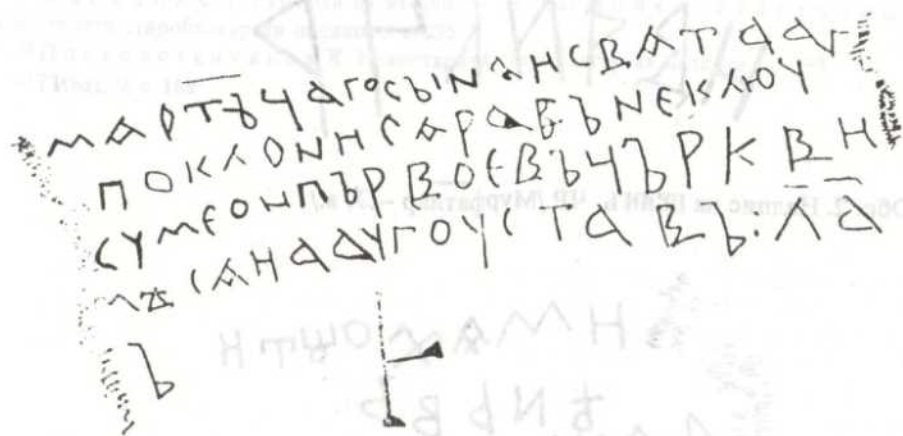 МАРТЪЧАГОСЪІНѦНСВѦТААГ
ПОКЛОННСѦРАБЪНЕКЛЮЧ
СУМЕОНПЪРВОЕВЪЧЪРКВН
МѢСѦНААУГОУСТАВЪ·ЛА
Ъ